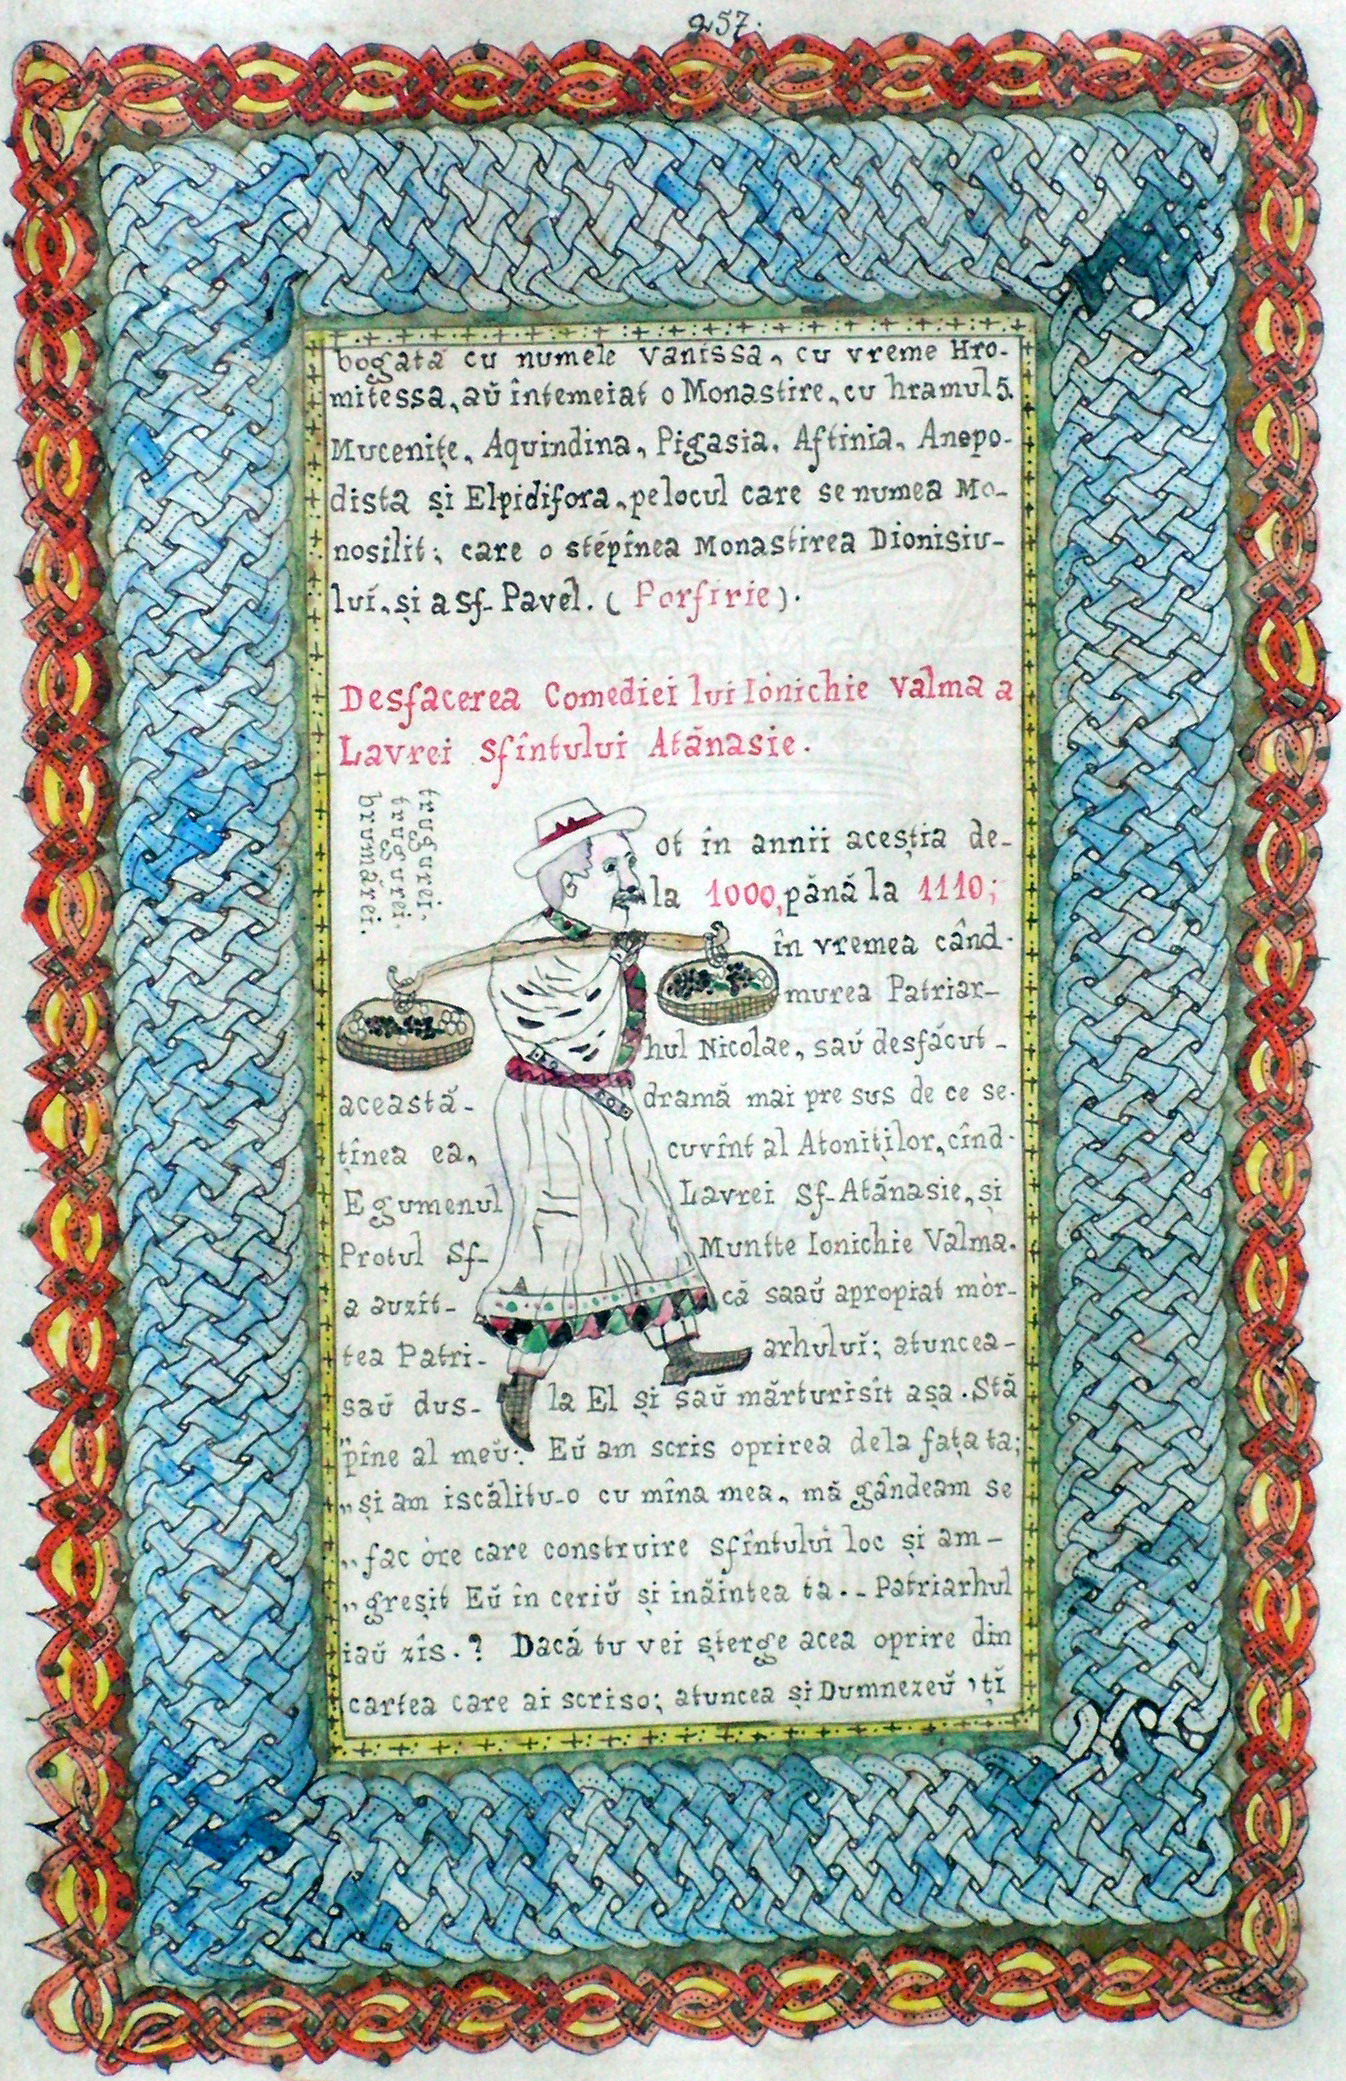 257.
bogata cu numele Vanissa, cu vreme Hro-
mitessa, aŭ întemeiat o Monastire, cu hramul 5.
Mucenițe, Aquindina, Pigasia, Aftinia, Anepo-
dista și Elpidifora, pe locul care se numea Mo-
nosilit; care o stépînea Monastirea Dionisiu-
lui, și a Sf- Pavel. ( Porfirie ).
Desfacerea Comediei lui Iónichie Valma a
Lavrei Sfîntului Atănasie.
trugurei,
trugurei.
brumărei.
ot în annii aceștia de-
la 1000, pănă la 1110;
în vremea când-
murea Patriar-
hul Nicolae, saŭ desfăcut -
această- dramă mai pre sus de ce se-
tînea ea, cuvînt al Atoniților, cînd-
Egumenul Lavrei Sf- Atănasie, și
Protul Sf- Muntte Ionichie Valma.
a auzit- că saaŭ apropiat mòr-
tea Patri- arhuluĭ; atuncea-
saŭ dus- la El și saŭ mărturisît așa. Stă
"pîne al meŭ: Eŭ am scris oprirea dela fața ta;
„ și am iscălitu-o cu mîna mea, mă gândeam se
„ fac òre care construire sfîntului loc și am-
„ greșit Eŭ în ceriŭ și inăintea ta.. Patriarhul
iaŭ zîs. ? Dacă tu vei șterge acea oprire din
cartea care ai scriso; atuncea și Dumnezeŭ 'țĭ